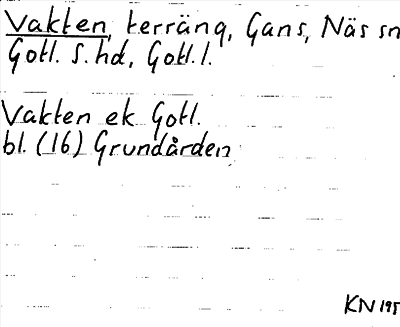 Vakten, terräng, Gans, Näs sn
Gotl. S. hd, Gotl. l.
Vakten ek Gotl.
bl. (16) Grundården
KN 195